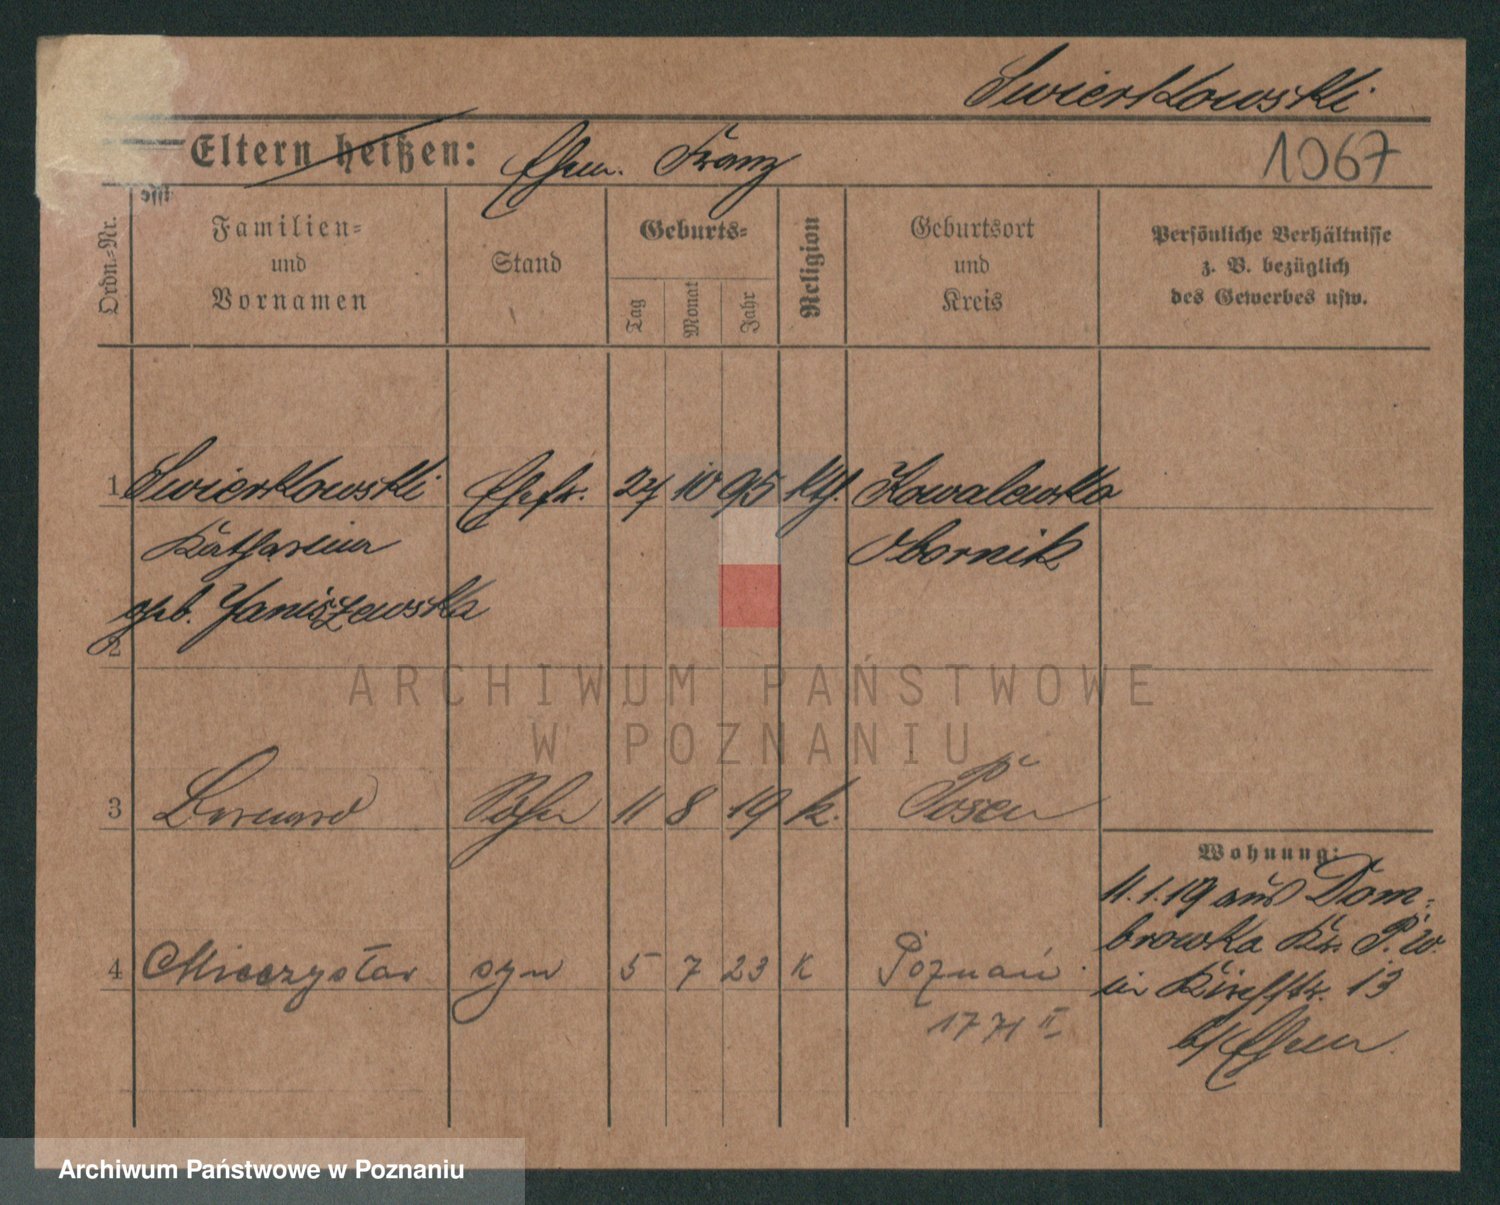 Swierkowski
Eltern heißen: Ehem. Franz 1067
Ordn.-Nr.
Familien=
und
Vornamen
Stand
Geburts=
Tag Monat Jahr
Religion
Geburtsort
und
Kreis
Persönliche Verhältnisse
z. B. bezüglich
des Gewerbes usw.
1 Swierkowski Ehefr. 27 10 95 kth. Kowalewko
Katharina Obornik
geb. Janiszewska
2
3 Bernard Sohn 11 8 19 k. Posen
4 Mieczysław syn 5 7 23 K Poznań
1771 II
Wohnung:
11.1.19 aus Dom=
browka Krs. P. W.
in Kirchstr. 13
b/Ehem.
ARCHIWUM PAŃSTWOWE
W POZNANIU
Archiwum Państwowe w Poznaniu